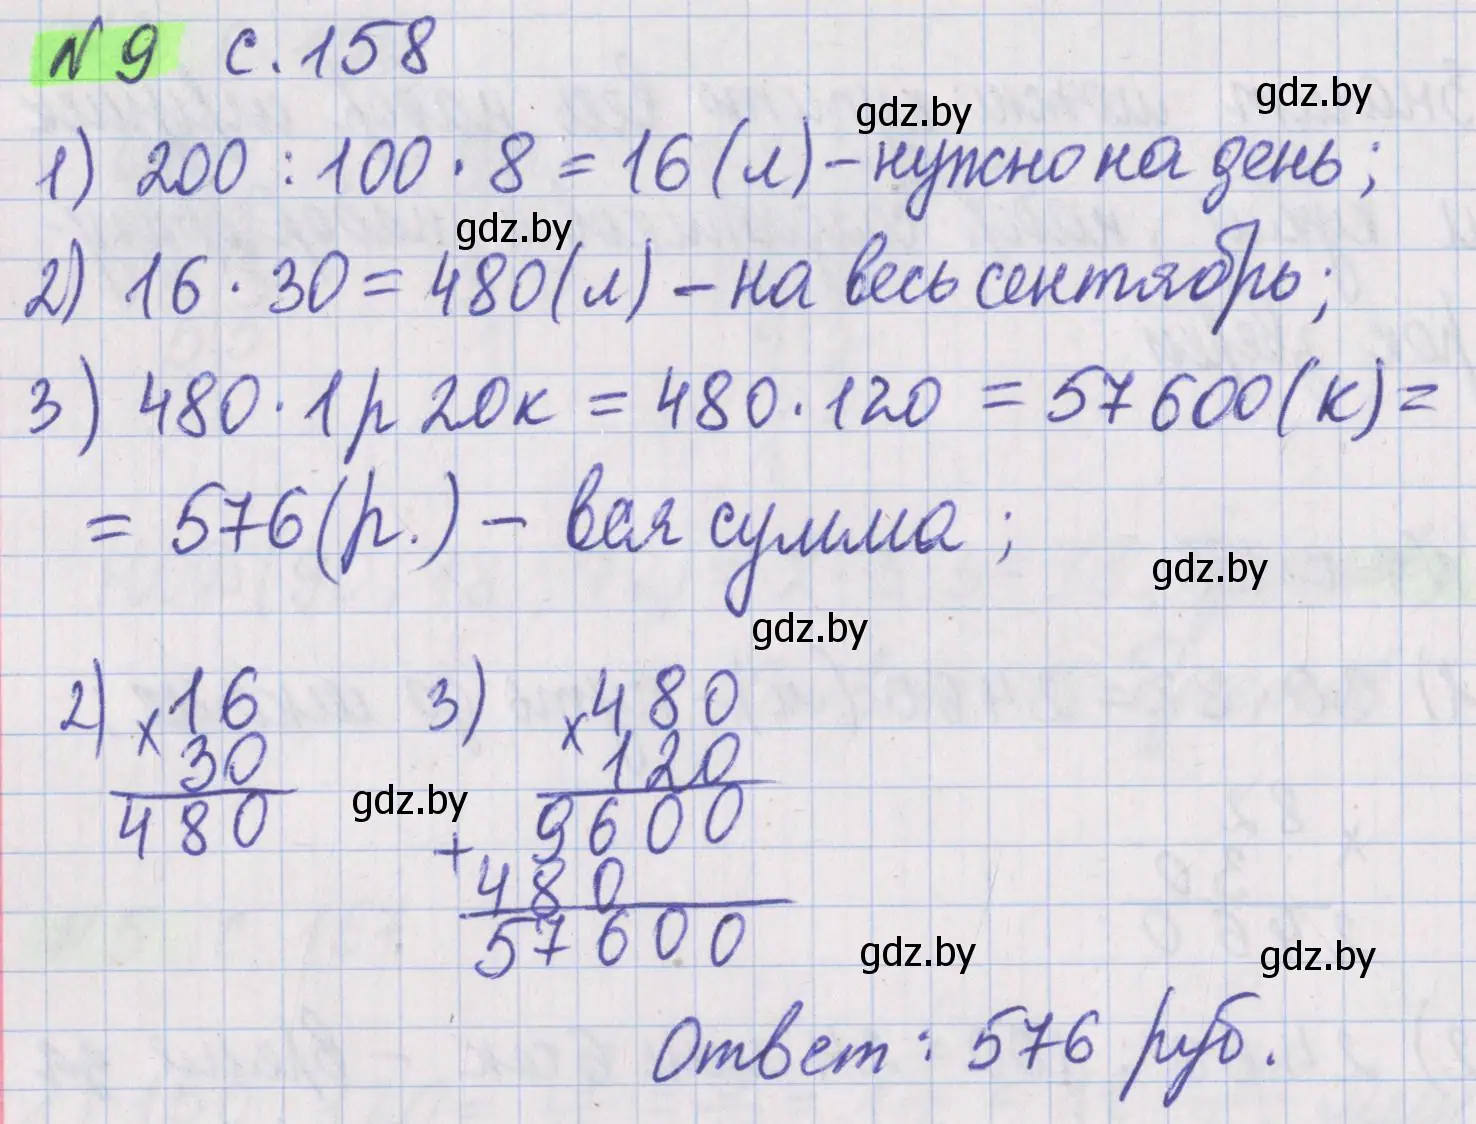 № 9 с. 158
gdz.by
gdz.by
1) 200 : 100 · 8 = 16 (л) – нужно на день;
gdz.by
2) 16 · 30 = 480 (л) – на весь сентябрь;
3) 480 · 1р 20к = 480 · 120 = 57600 (к) =
= 576 (р.) – вся сумма;
gdz.by
gdz.by
2) × 16
30
480
3) × 480
120
gdz.by
9600
+
480
57600
gdz.by
gdz.by
Ответ: 576 руб.